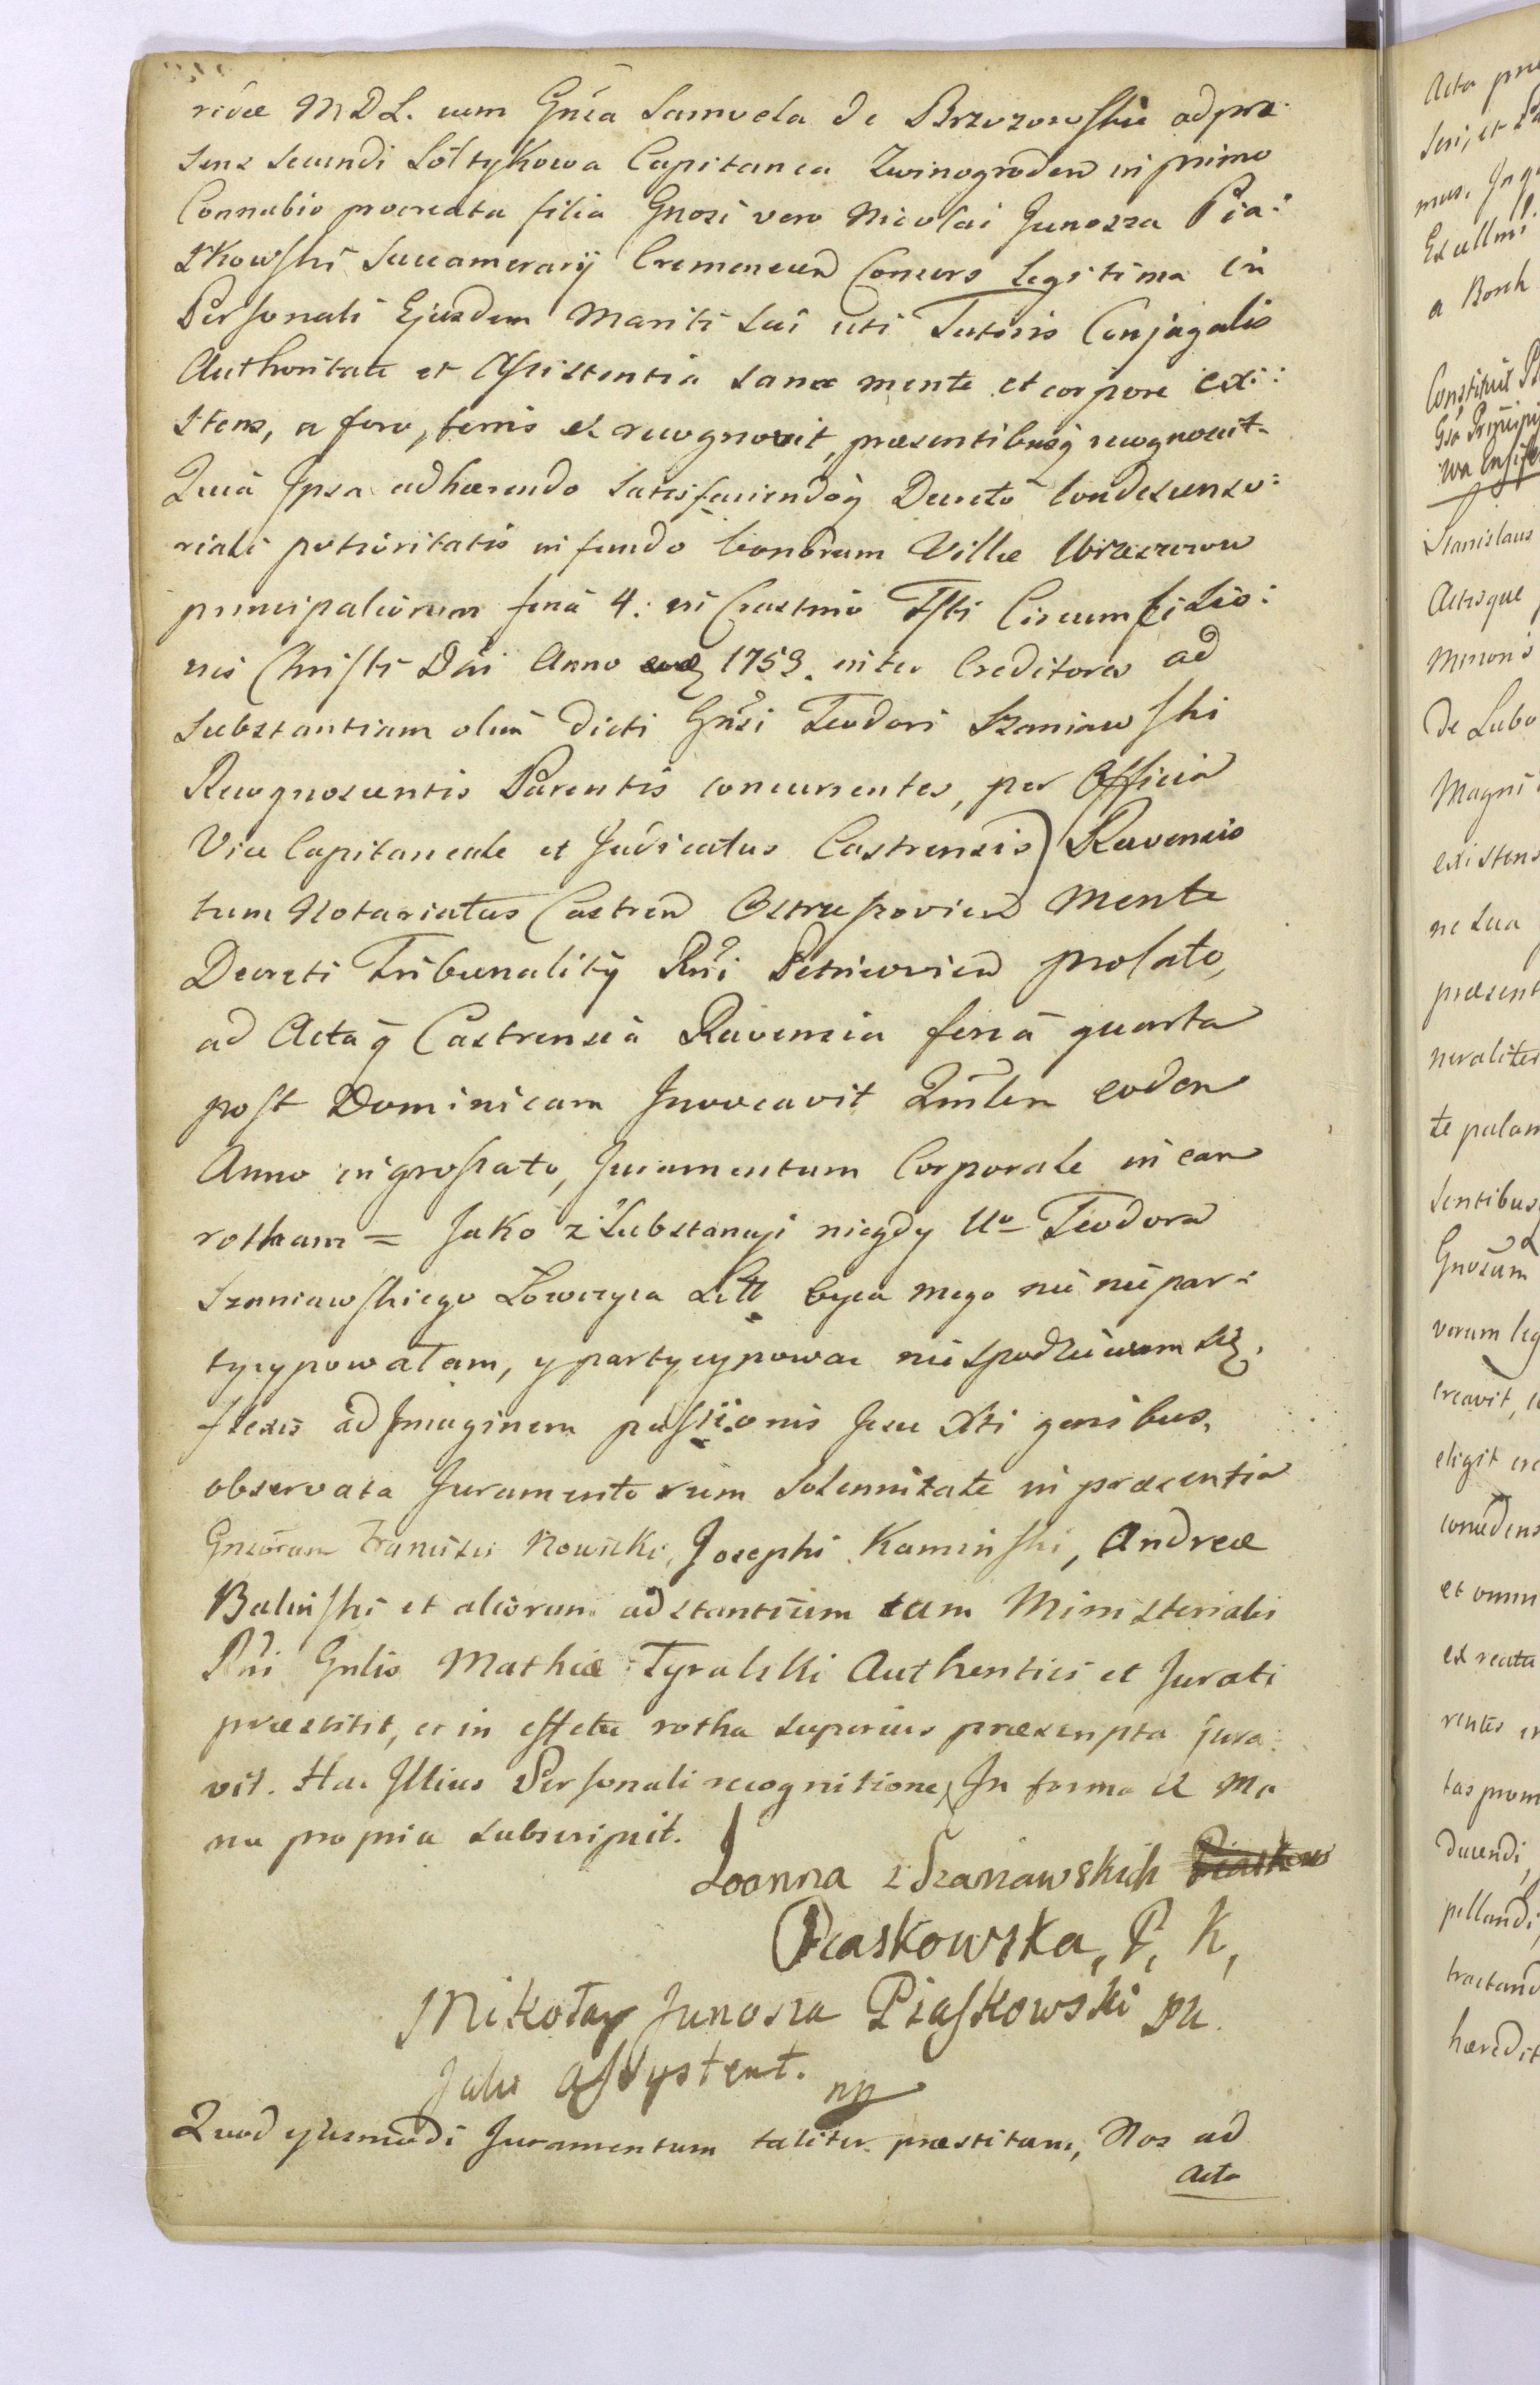 M D L. cum Gnēa Samuela de Brzozowskie ad prae:
sens secundi Sołtykowa Capitanea Zwinogroden in primo
Connubio procreata filia Gnosi vero Nicolai Junosza Pia:
skowski Succamerarij Cremenecen Consors legitima in
Personali Ejusdem Mariti sui uti Tutoris Conjugalis
Authoritate et Assistentia sana mente et corpore exi:
stens, a foro, terris et recognovit, praesentibusq recognoscit.
Quia Ipsa adhaerendo satisfaciendoq Decreto Condescenso:
riali potioritatis in fundo bonorum Villae
principaliorum feria 4. in Crastino Festi Circumcisio:
nis Christi Dni Anno 1759. inter Creditores ad
Substantiam olim dicti Gnosi Teodori Szaniawski
Recognoscentis Parentis concurrentes, per Officia
Vice Capitaneale et Judicatus Castrensis) Ravensis
tum Notariatus Castren mente
Decreti Tribunalitij Rni Petricovien prolato,
ad Actaq Castrensia Ravensia feria quarta
post Dominicam Invocavit Qmlem eodem
Anno ingrossato, Juramentum Corporale in eam
rotham = Jako z Substancyi niegdy Uo Teodora
Szaniawskiego Łowczyca Litt oyca mego nie nie par:
tycypowałam, y partycypowac nie spodziewam się,
flexis ad Imaginem passionis Jesu Xti genibus,
observata Juramentorum Solennitate in praesentia
Gnsorum Francisci Nowicki, Josephi Kaminski, Andreae
Balinski et aliorum adstantium tam Ministerialis
Rni Gnlis Mathiae Tyralski Authentici et Jurati
praestitit, et in effectu rotha superius praescripta jura:
vit. Hac Illius Personali recognitione, In forma et Ma
nu propria subscripsit.
Joanna z Szaniawskich Piaskow
Piaskowska, P, K,
Mikołay Junosza Piaskowski PK
Jako assystent. mp
Quod ejusmodi Juramentum taliter praestitum, Nos ad
Acta
Acta
mus.
a Borch
Constituit
Stanislaus
Actisque
Minoris
de Lubo
Magni
existens
ne sua
praesent
neraliter
te palam
sentibus
Gnosum
verum leg
creavit,
eligit
et omn
tas prom
ducendi,
pellandi,
tractand
haeredit